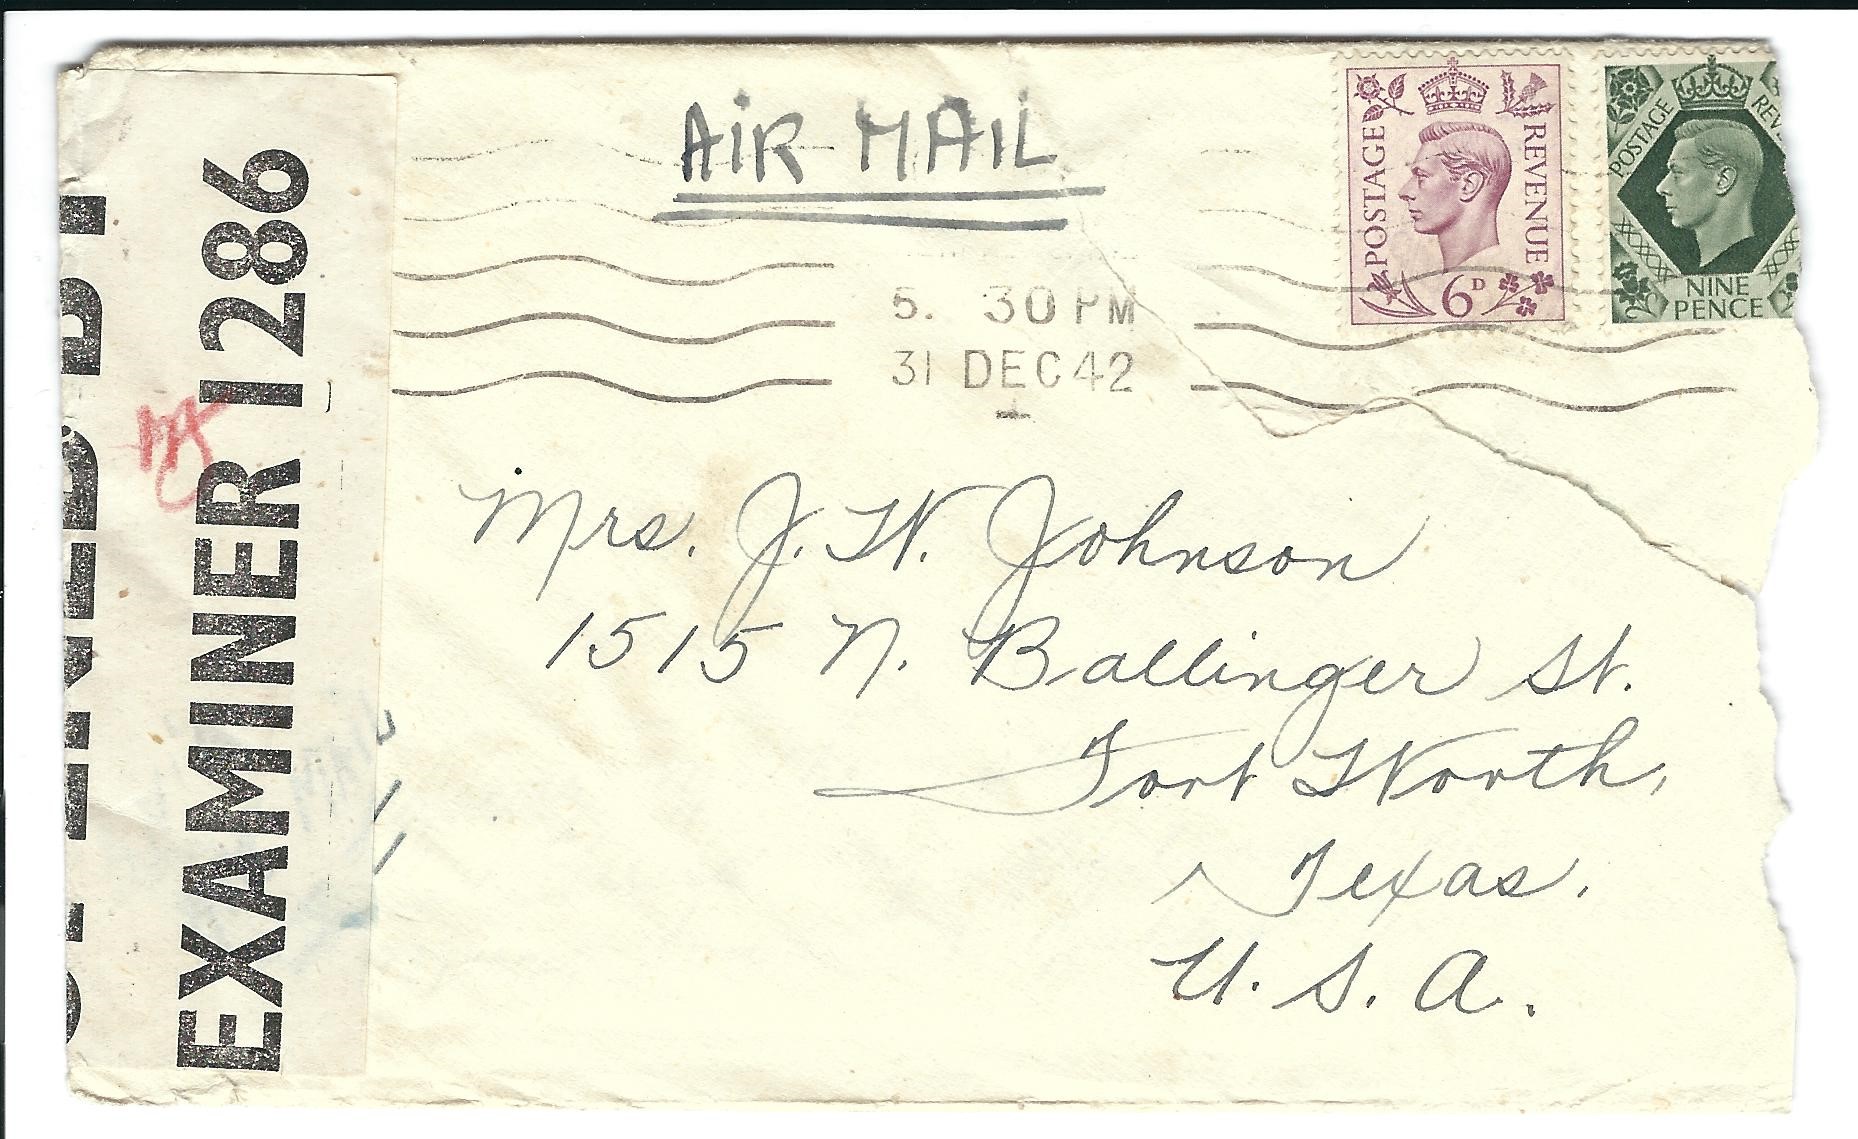 AIR MAIL
POSTAGE
REVENUE
6D
POSTAGE
REV
NINE
PENCE
5. 30 PM
31 DEC 42
OPENED BY
EXAMINER 1286
Mrs. J. W. Johnson
1515 N. Ballinger St.
Fort Worth,
Texas.
U. S. A.